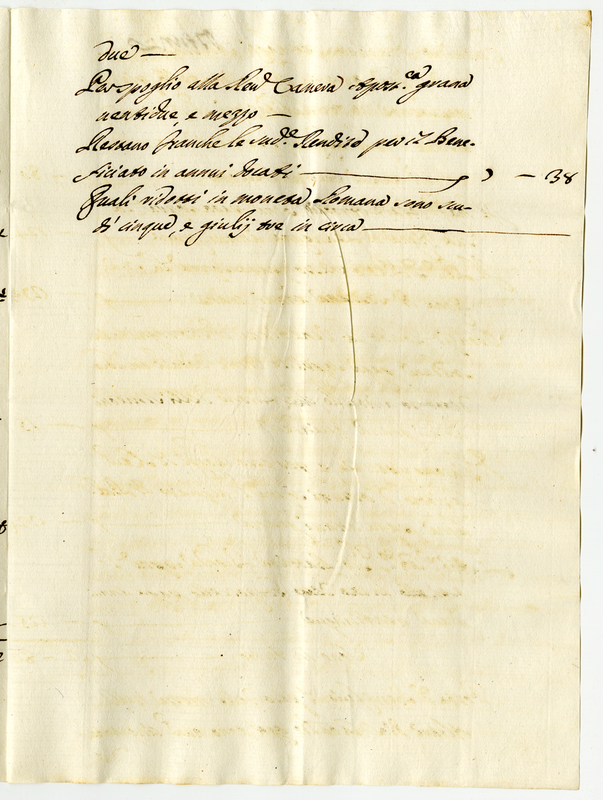 due —
Per spoglio alla Revd Camera Apost.ca grana
ventidue, e mezzo —
Restano franche le sud.e Rendite per il Bene-
ficiato in annui docati — 38
Quali ridotti in moneta Romana sono scu-
di cinque, e giulij tre in circa —